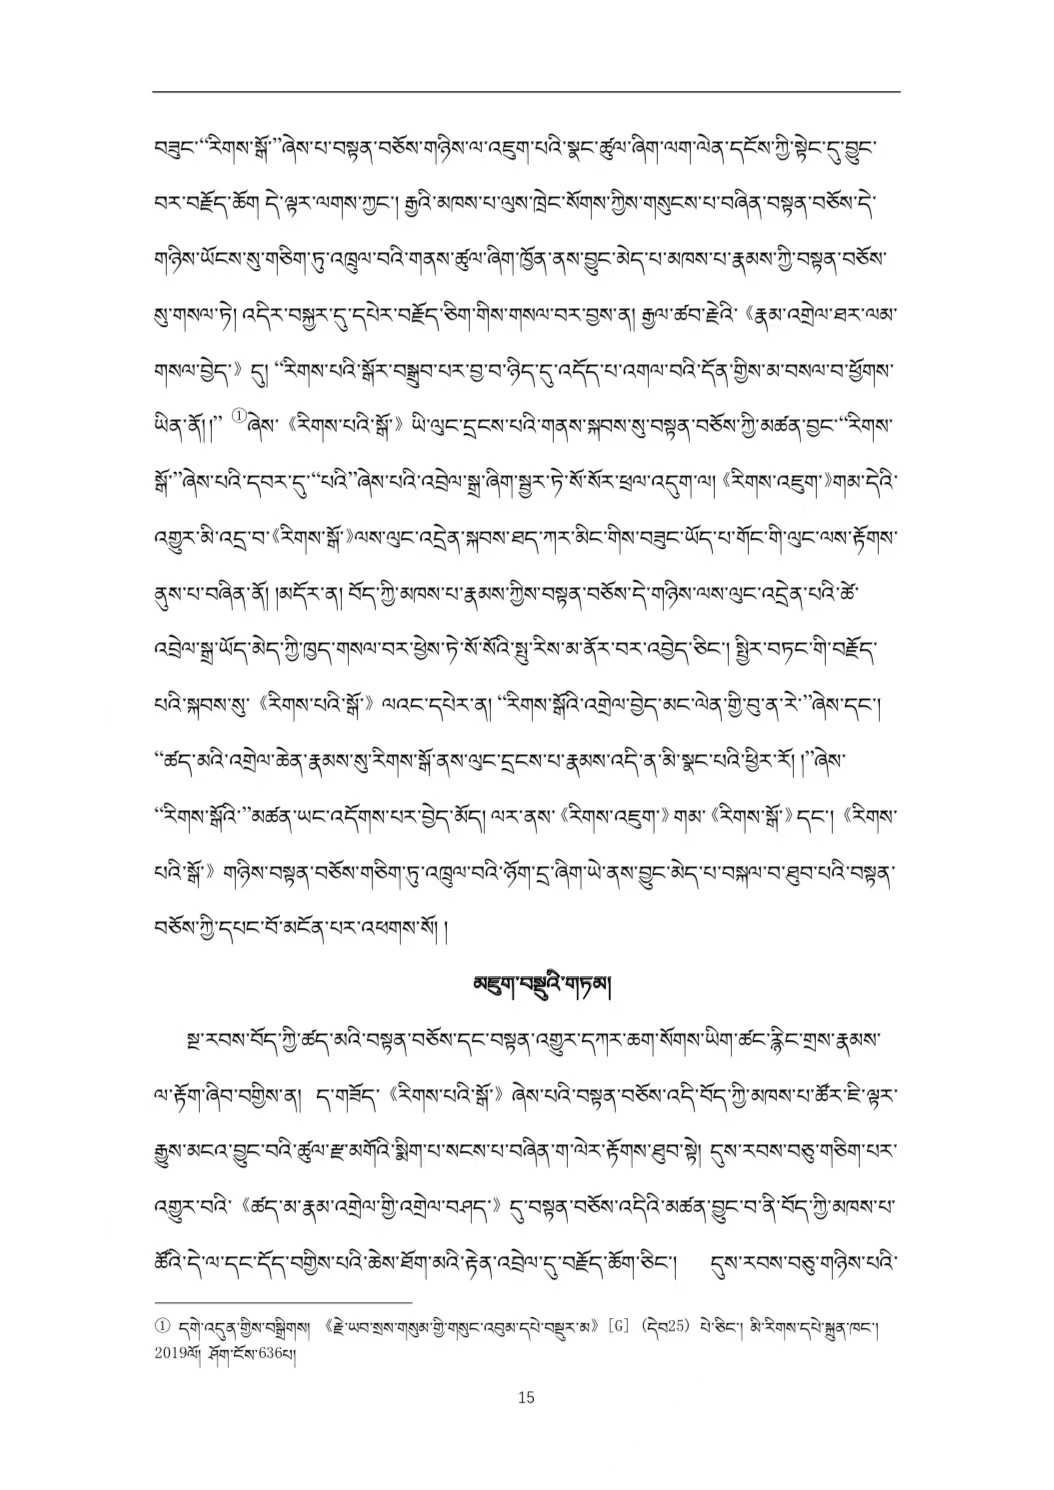 བཟུང་“རིགས་སྒོ་”ཞེས་པ་བསྟན་བཅོས་གཉིས་ལ་འཇུག་པའི་སྣང་ཚུལ་ཞིག་ལག་ལེན་དངོས་ཀྱི་སྟེང་དུ་བྱུང་
བར་བརྗོད་ཆོག དེ་ལྟར་ལགས་ཀྱང་། རྒྱའི་མཁས་པ་ལུས་ཁྲེང་སོགས་ཀྱིས་གསུངས་པ་བཞིན་བསྟན་བཅོས་དེ་
གཉིས་ཡོངས་སུ་གཅིག་ཏུ་འཁྲུལ་བའི་གནས་ཚུལ་ཞིག་ཁྱོན་ནས་བྱུང་མེད་པ་མཁས་པ་རྣམས་ཀྱི་བསྟན་བཅོས་
སུ་གསལ་ཏེ། འདིར་བསྐྱར་དུ་དཔེར་བརྗོད་ཅིག་གིས་གསལ་བར་བྱས་ན། རྒྱལ་ཚབ་རྗེའི་《རྣམ་འགྲེལ་ཐར་ལམ་
གསལ་བྱེད་》དུ། “རིགས་པའི་སྒོར་བསྒྲུབ་པར་བྱ་བ་ཉིད་དུ་འདོད་པ་འགལ་བའི་དོན་གྱིས་མ་བསལ་བ་ཕྱོགས་
ཡིན་ནོ། །” ①ཞེས་《རིགས་པའི་སྒོ་》ཡི་ལུང་དྲངས་པའི་གནས་སྐབས་སུ་བསྟན་བཅོས་ཀྱི་མཚན་བྱང་“རིགས་
སྒོ་”ཞེས་པའི་དབར་དུ་“པའི”ཞེས་པའི་འབྲེལ་སྒྲ་ཞིག་སྦྱར་ཏེ་སོ་སོར་ཕྲལ་འདུག་ལ། 《རིགས་འཇུག་》གམ་དེའི་
འགྱུར་མི་འདྲ་བ་《རིགས་སྒོ་》ལས་ལུང་འདྲེན་སྐབས་ཐད་ཀར་མིང་གིས་བཟུང་ཡོད་པ་གོང་གི་ལུང་ལས་རྟོགས་
ནུས་པ་བཞིན་ནོ། །མདོར་ན། བོད་ཀྱི་མཁས་པ་རྣམས་ཀྱིས་བསྟན་བཅོས་དེ་གཉིས་ལས་ལུང་འདྲེན་པའི་ཚེ་
འབྲེལ་སྒྲ་ཡོད་མེད་ཀྱི་ཁྱད་གསལ་བར་ཕྱེས་ཏེ་སོ་སོའི་སྤུ་རིས་མ་ནོར་བར་འབྱེད་ཅིང་། སྤྱིར་བཏང་གི་བརྗོད་
པའི་སྐབས་སུ་《རིགས་པའི་སྒོ་》ལའང་དཔེར་ན། “རིགས་སྒོའི་འགྲེལ་བྱེད་མང་ལེན་གྱི་བུ་ན་རེ་”ཞེས་དང་།
“ཚད་མའི་འགྲེལ་ཆེན་རྣམས་སུ་རིགས་སྒོ་ནས་ལུང་དྲངས་པ་རྣམས་འདི་ན་མི་སྣང་པའི་ཕྱིར་རོ། །”ཞེས་
“རིགས་སྒོའི་”མཚན་ཡང་འདོགས་པར་བྱེད་མོད། ལར་ནས་《རིགས་འཇུག་》གམ་《རིགས་སྒོ་》དང་། 《རིགས་
པའི་སྒོ་》གཉིས་བསྟན་བཅོས་གཅིག་ཏུ་འཁྲུལ་བའི་ཉོག་དྲ་ཞིག་ཡེ་ནས་བྱུང་མེད་པ་བསྐལ་བ་ཐུབ་པའི་བསྟན་
བཅོས་ཀྱི་དཔང་པོ་མངོན་པར་འཕགས་སོ། །
མཇུག་བསྡུའི་གཏམ།
སྔ་རབས་བོད་ཀྱི་ཚད་མའི་བསྟན་བཅོས་དང་བསྟན་འགྱུར་དཀར་ཆག་སོགས་ཡིག་ཚང་རྙིང་གྲས་རྣམས་
ལ་རྟོག་ཞིབ་བགྱིས་ན། ད་གཟོད་《རིགས་པའི་སྒོ་》ཞེས་པའི་བསྟན་བཅོས་འདི་བོད་ཀྱི་མཁས་པ་ཚོར་ཇི་ལྟར་
རྒྱུས་མངའ་བྱུང་བའི་ཚུལ་རྫ་མགོའི་སྨིག་པ་སངས་པ་བཞིན་ག་ལེར་རྟོགས་ཐུབ་སྟེ། དུས་རབས་བཅུ་གཅིག་པར་
འགྱུར་བའི་《ཚད་མ་རྣམ་འགྲེལ་གྱི་འགྲེལ་བཤད་》དུ་བསྟན་བཅོས་འདིའི་མཚན་བྱུང་བ་ནི་བོད་ཀྱི་མཁས་པ་
ཚོའི་དེ་ལ་དང་དོད་བགྱིས་པའི་ཆེས་ཐོག་མའི་རྟེན་འབྲེལ་དུ་བརྗོད་ཆོག་ཅིང་། དུས་རབས་བཅུ་གཉིས་པའི་
① དགེ་འདུན་གྱིས་བསྒྲིགས། 《རྗེ་ཡབ་སྲས་གསུམ་གྱི་གསུང་འབུམ་དཔེ་བསྡུར་མ》[G] (དེབ25) པེ་ཅིང་། མི་རིགས་དཔེ་སྐྲུན་ཁང་།
2019ལོ། ཤོག་ངོས་636པ།
15